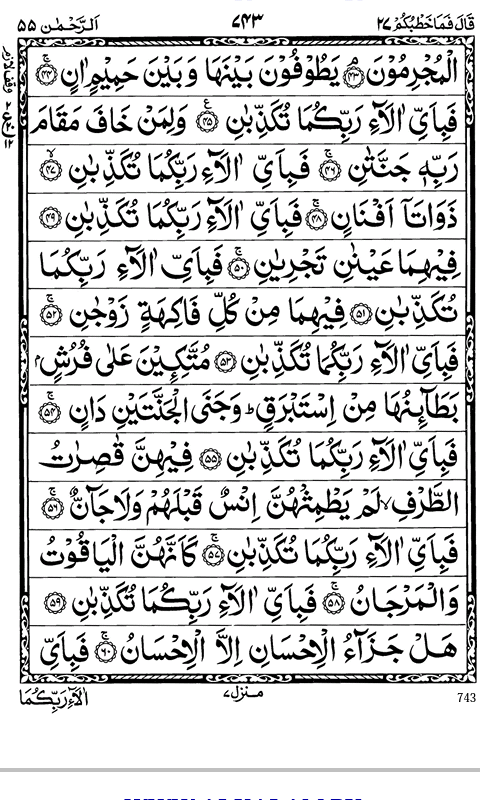 قَالَ فَمَا خَطْبُكُمْ ٢٧ ٧٤٣ اَلرَّحْمٰن ٥٥
الْمُجْرِمُوْنَ ۝٤٣ يَطُوْفُوْنَ بَيْنَهَا وَبَيْنَ حَمِيْمٍ اٰنٍ ۝٤٤
فَبِاَيِّ اٰلَآءِ رَبِّكُمَا تُكَذِّبٰنِ ۝٤٥ وَلِمَنْ خَافَ مَقَامَ
رَبِّهٖ جَنَّتٰنِ ۝٤٦ فَبِاَيِّ اٰلَآءِ رَبِّكُمَا تُكَذِّبٰنِ ۝٤٧
ذَوَاتَاۤ اَفْنَانٍ ۝٤٨ فَبِاَيِّ اٰلَآءِ رَبِّكُمَا تُكَذِّبٰنِ ۝٤٩
فِيْهِمَا عَيْنٰنِ تَجْرِيٰنِ ۝٥٠ فَبِاَيِّ اٰلَآءِ رَبِّكُمَا
تُكَذِّبٰنِ ۝٥١ فِيْهِمَا مِنْ كُلِّ فَاكِهَةٍ زَوْجٰنِ ۝٥٢
فَبِاَيِّ اٰلَآءِ رَبِّكُمَا تُكَذِّبٰنِ ۝٥٣ مُتَّكِـِٕيْنَ عَلٰى فُرُشٍۭ
بَطَآئِنُهَا مِنْ اِسْتَبْرَقٍ ؕ وَجَنَى الْجَنَّتَيْنِ دَانٍ ۝٥٤
فَبِاَيِّ اٰلَآءِ رَبِّكُمَا تُكَذِّبٰنِ ۝٥٥ فِيْهِنَّ قٰصِرٰتُ
الطَّرْفِ ۙ لَمْ يَطْمِثْهُنَّ اِنْسٌ قَبْلَهُمْ وَلَا جَآنٌّ ۝٥٦
فَبِاَيِّ اٰلَآءِ رَبِّكُمَا تُكَذِّبٰنِ ۝٥٧ كَاَنَّهُنَّ الْيَاقُوْتُ
وَالْمَرْجَانُ ۝٥٨ فَبِاَيِّ اٰلَآءِ رَبِّكُمَا تُكَذِّبٰنِ ۝٥٩
هَلْ جَزَآءُ الْاِحْسَانِ اِلَّا الْاِحْسَانُ ۝٦٠ فَبِاَيِّ
منزل ٧
اٰلَآءِ رَبِّكُمَا
743